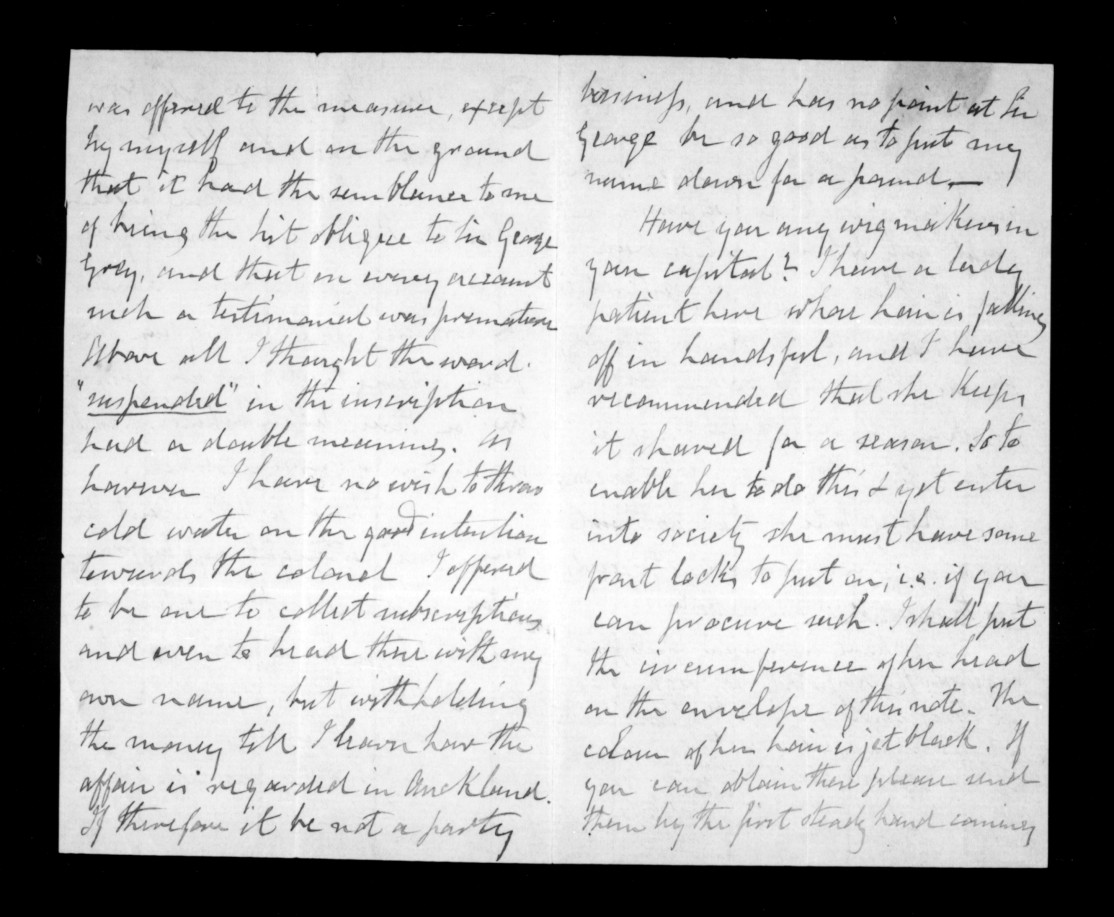 was offered to the measure, except
by myself and on the ground
that it had the semblance to me
of being the hit oblique to Sir George
Grey, and that on every account
such a testimonial was premature
Above all I thought the word.
"suspended" in the inscription
had a double meaning. As
however I have no wish to throw
cold water on the good intention
towards the colonel I offered
to be one to collect subscriptions
and even to head these with my
own name, but withholding
the money till I learn how the
affair is regarded in Auckland.
If therefore it be not a party
business, and has no point at Sir
George be so good as to put my
name down for a pound.—
Have you any wigmakers in
your capital? I have a lady
patient here whose hair is falling
off in handsful, and I have
recommended that she keeps
it shaved for a season. So to
enable her to do this & yet enter
into society she must have some
front locks to put on, i.e. if you
can procure such. I shall put
the circumference of her head
on the envelope of this note. The
colour of her hair is jet black. If
you can obtain these please send
them by the first steady hand coming